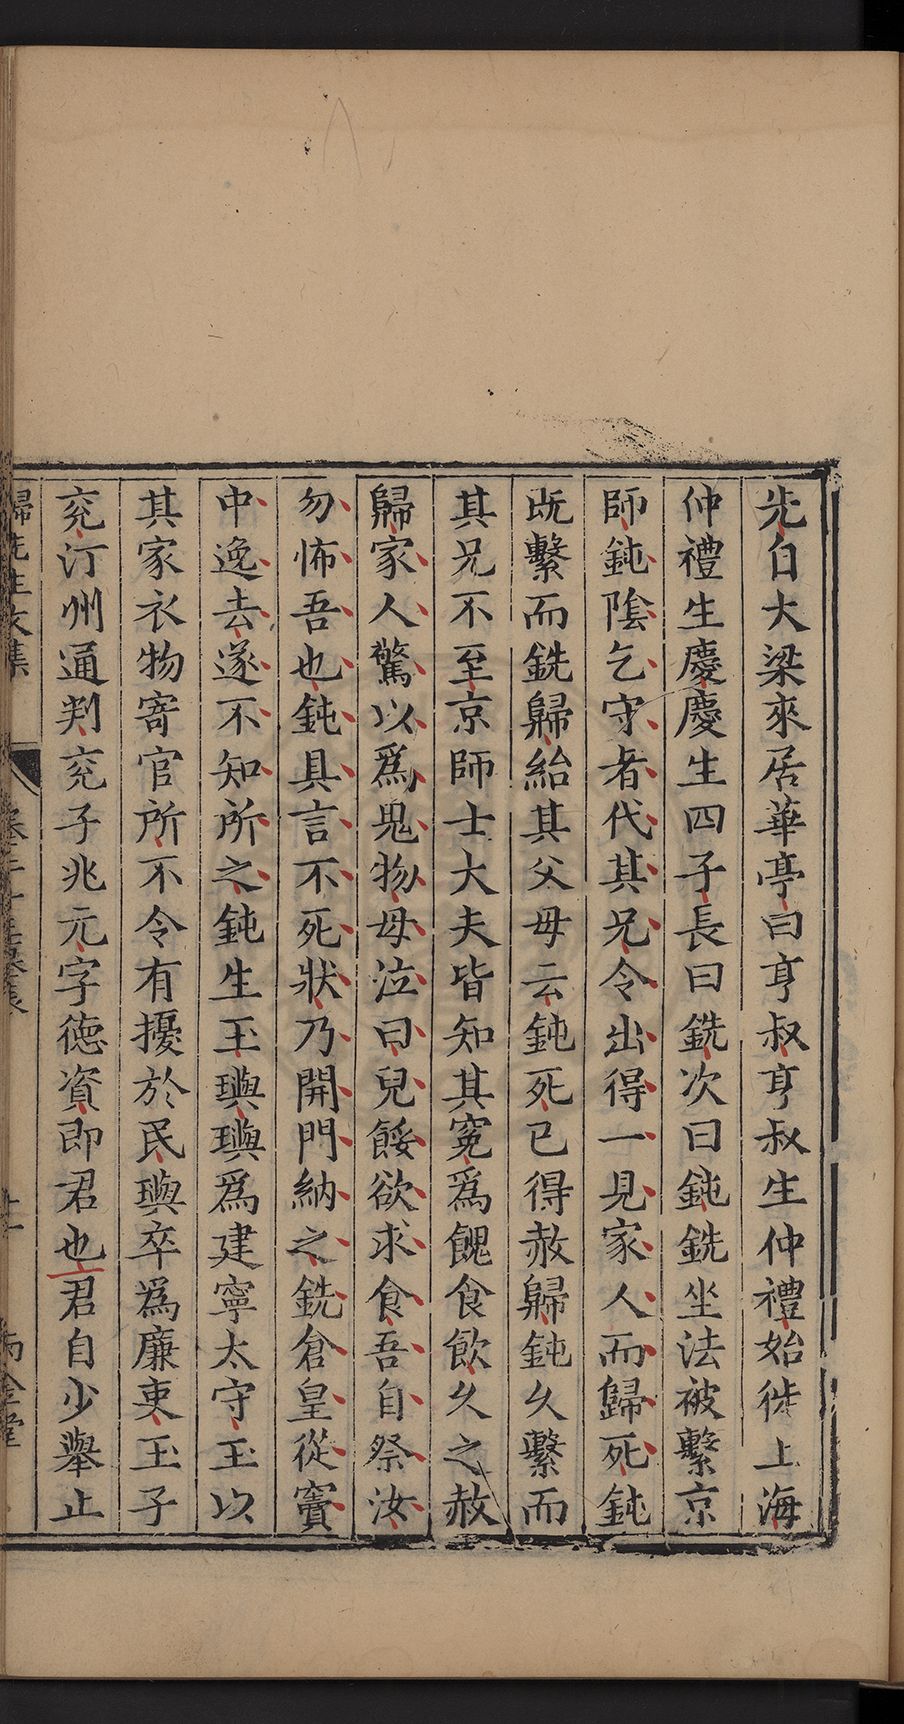 先白大梁來居華亭曰亨叔亨叔生仲禮始徙上海
仲禮生慶慶生四子長曰銑次曰鈍銑坐法被繫京
師鈍陰乞守者代其兄令出得一見家人而歸死鈍
既繫而銑歸紿其父母云鈍死已得赦歸鈍久繫而
其兄不至京師士大夫皆知其寃爲餽食飲久之赦
歸家人驚以爲鬼物母泣曰兒餒欲求食吾自祭汝
勿怖吾也鈍具言不死狀乃開門納之銑倉皇從竇
中逸去遂不知所之鈍生玉璵璵爲建寧太守玉以
其家衣物寄官所不令有擾於民璵卒爲廉吏玉子
兖汀州通判兖子兆元字德資即君也君自少舉止
歸先生文集